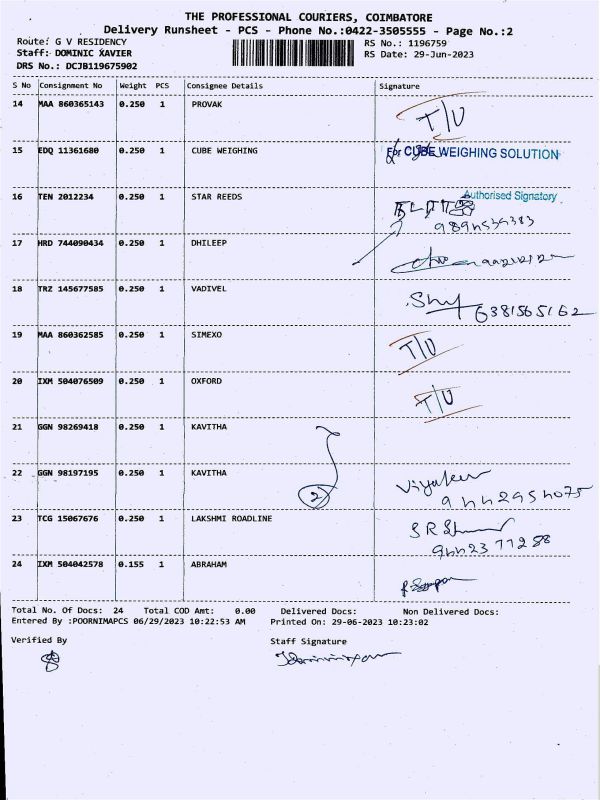 THE PROFESSIONAL COURIERS, COIMBATORE
Delivery Runsheet - PCS - Phone No.:0422-3505555 - Page No.:2
Route: G V RESIDENCY
RS No.: 1196759
Staff: DOMINIC XAVIER
RS Date: 29-Jun-2023
DRS No.: DCJB119675902
S No Consignment No Weight PCS Consignee Details Signature
14 MAA 860365143 0.250 1 PROVAK T/U
15 EDQ 11361680 0.250 1 CUBE WEIGHING For CUBE WEIGHING SOLUTION
Authorised Signatory
16 TEN 2012234 0.250 1 STAR REEDS
17 HRD 744090434 0.250 1 DHILEEP
18 TRZ 145677585 0.250 1 VADIVEL 6381565162
19 MAA 860362585 0.250 1 SIMEXO T/U
20 IXM 504076509 0.250 1 OXFORD T/U
21 GGN 98269418 0.250 1 KAVITHA
22 GGN 98197195 0.250 1 KAVITHA 2
23 TCG 15067676 0.250 1 LAKSHMI ROADLINE
24 IXM 504042578 0.155 1 ABRAHAM
Total No. Of Docs: 24 Total COD Amt: 0.00 Delivered Docs: Non Delivered Docs:
Entered By :POORNIMAPCS 06/29/2023 10:22:53 AM Printed On: 29-06-2023 10:23:02
Verified By Staff Signature